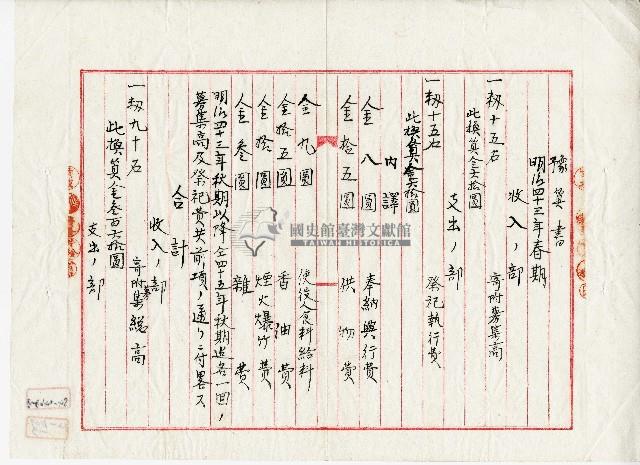 豫算書
明治四十三年春期
收入ノ部
一籾十五石 寄附募集高
此換算金六拾圓
支出ノ部
一籾十五石 祭祀執行費
此換算金六拾圓
内譯
金八圓 奉納興行費
金拾五圓 供物費
金九圓 使役人食料給料
金拾五圓 香油費
金拾圓 煙火爆竹費
金叁圓 雜費
明治四十三年秋期以降仝四十五年秋期迄各一回ノ
募集高及祭祀費共前項ノ通リニ付畧ス
合計
收入ノ部
一籾九十石 寄附募集總高
此換算金叁百六拾圓
支出ノ部
國史館臺灣文獻館
TAIWAN HISTORICA